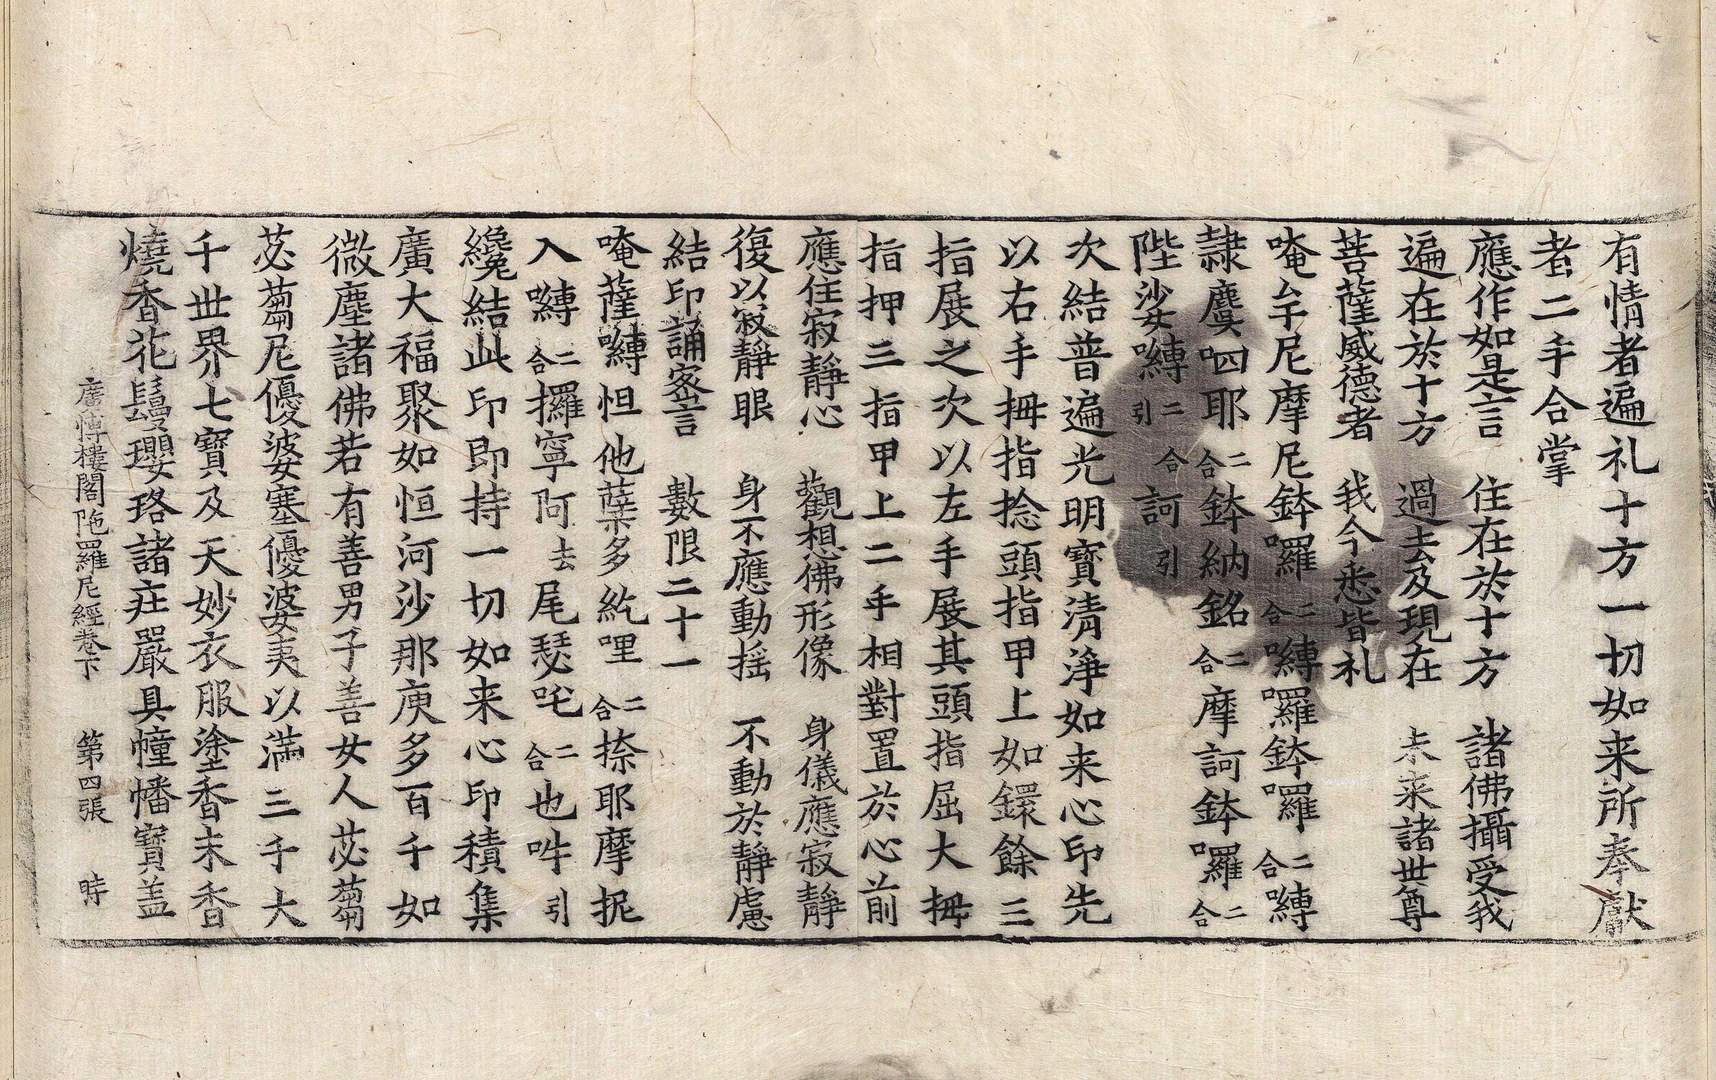 有情者遍礼十方一切如来所奉獻
者二手合掌
應作如是言　住在於十方　諸佛攝受我
遍在於十方　過去及現在　未来諸世尊
菩薩威德者　我今悉皆礼
唵牟尼摩尼鉢囉二合嚩囉鉢囉二合嚩
隷麌呬耶二合鉢納銘二合摩訶鉢囉二合
陛娑嚩二合引訶引
次結普遍光明寶清淨如来心印先
以右手拇指捻頭指甲上如鐶餘三
指展之次以左手展其頭指屈大拇
指押三指甲上二手相對置於心前
應住寂靜心　觀想佛形像　身儀應寂靜
復以寂靜眼　身不應動摇　不動於靜慮
結印誦密言　數限二十一
唵薩嚩怛他蘖多紇哩二合捺耶摩抳
入嚩二合攞寧阿去尾瑟吒二合也吽引
纔結此印即持一切如来心印積集
廣大福聚如恒河沙那庾多百千如
微塵諸佛若有善男子善女人苾蒭
苾蒭尼優婆塞優婆夷以满三千大
千世界七寶及天妙衣服塗香末香
燒香花鬘瓔珞諸庄嚴具幢幡寶盖
廣博樓閣陁羅尼經卷下　第四張　時